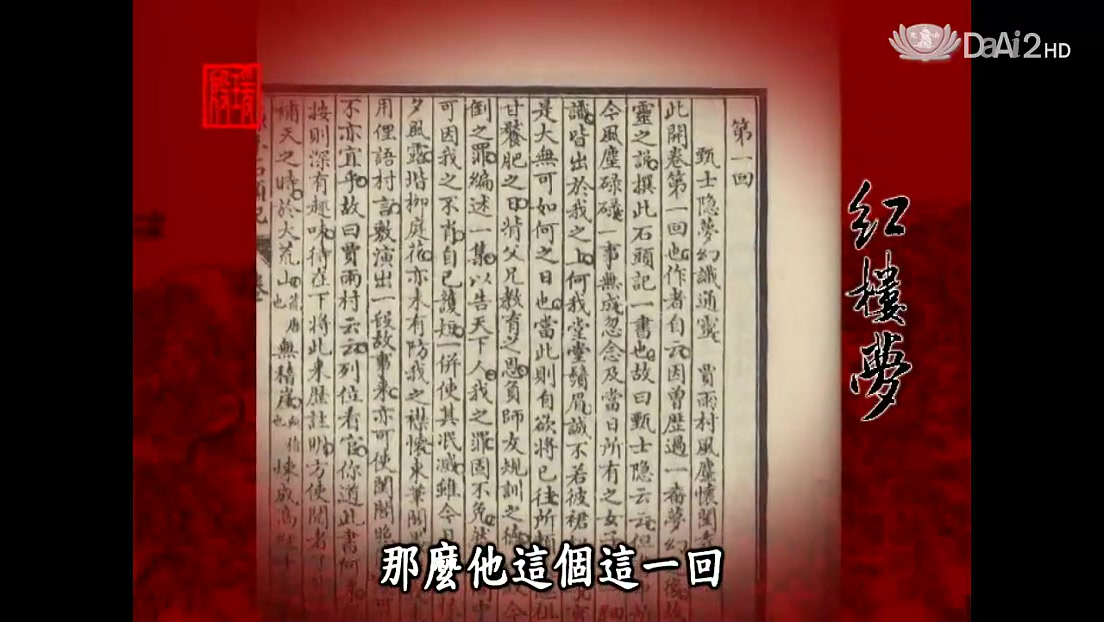 DaAi2 HD
紅樓夢
第一回
甄士隐夢幻識通靈 賈雨村風塵懷閨
此開卷第一回也作者自云因曾歷過一番夢幻
靈之說撰此石頭記一書也故曰甄士隐云云但
今風塵碌碌一事無成忽念及當日所有之女子
識皆出於我之上何我堂堂鬚眉誠不若彼裙
是大無可如何之日也當此則自欲將已往所
甘饜肥之日背父兄教育之恩負師友規訓之德
倒之罪編述一集以告天下人我之罪固不免然
可因我之不肖自己護短一併使其泯滅雖今日
夕風露堦柳庭花亦未有防我之襟懷束筆閣
用俚語村言敷演出一段故事來亦可使閨閣昭
不亦宜乎故曰賈雨村云云列位看官你道此書何来
按則深有趣味待在下將此来歷註明方使閱者
補天之時於大荒山也無稽崖也煉成高經十
那麼他這個這一回